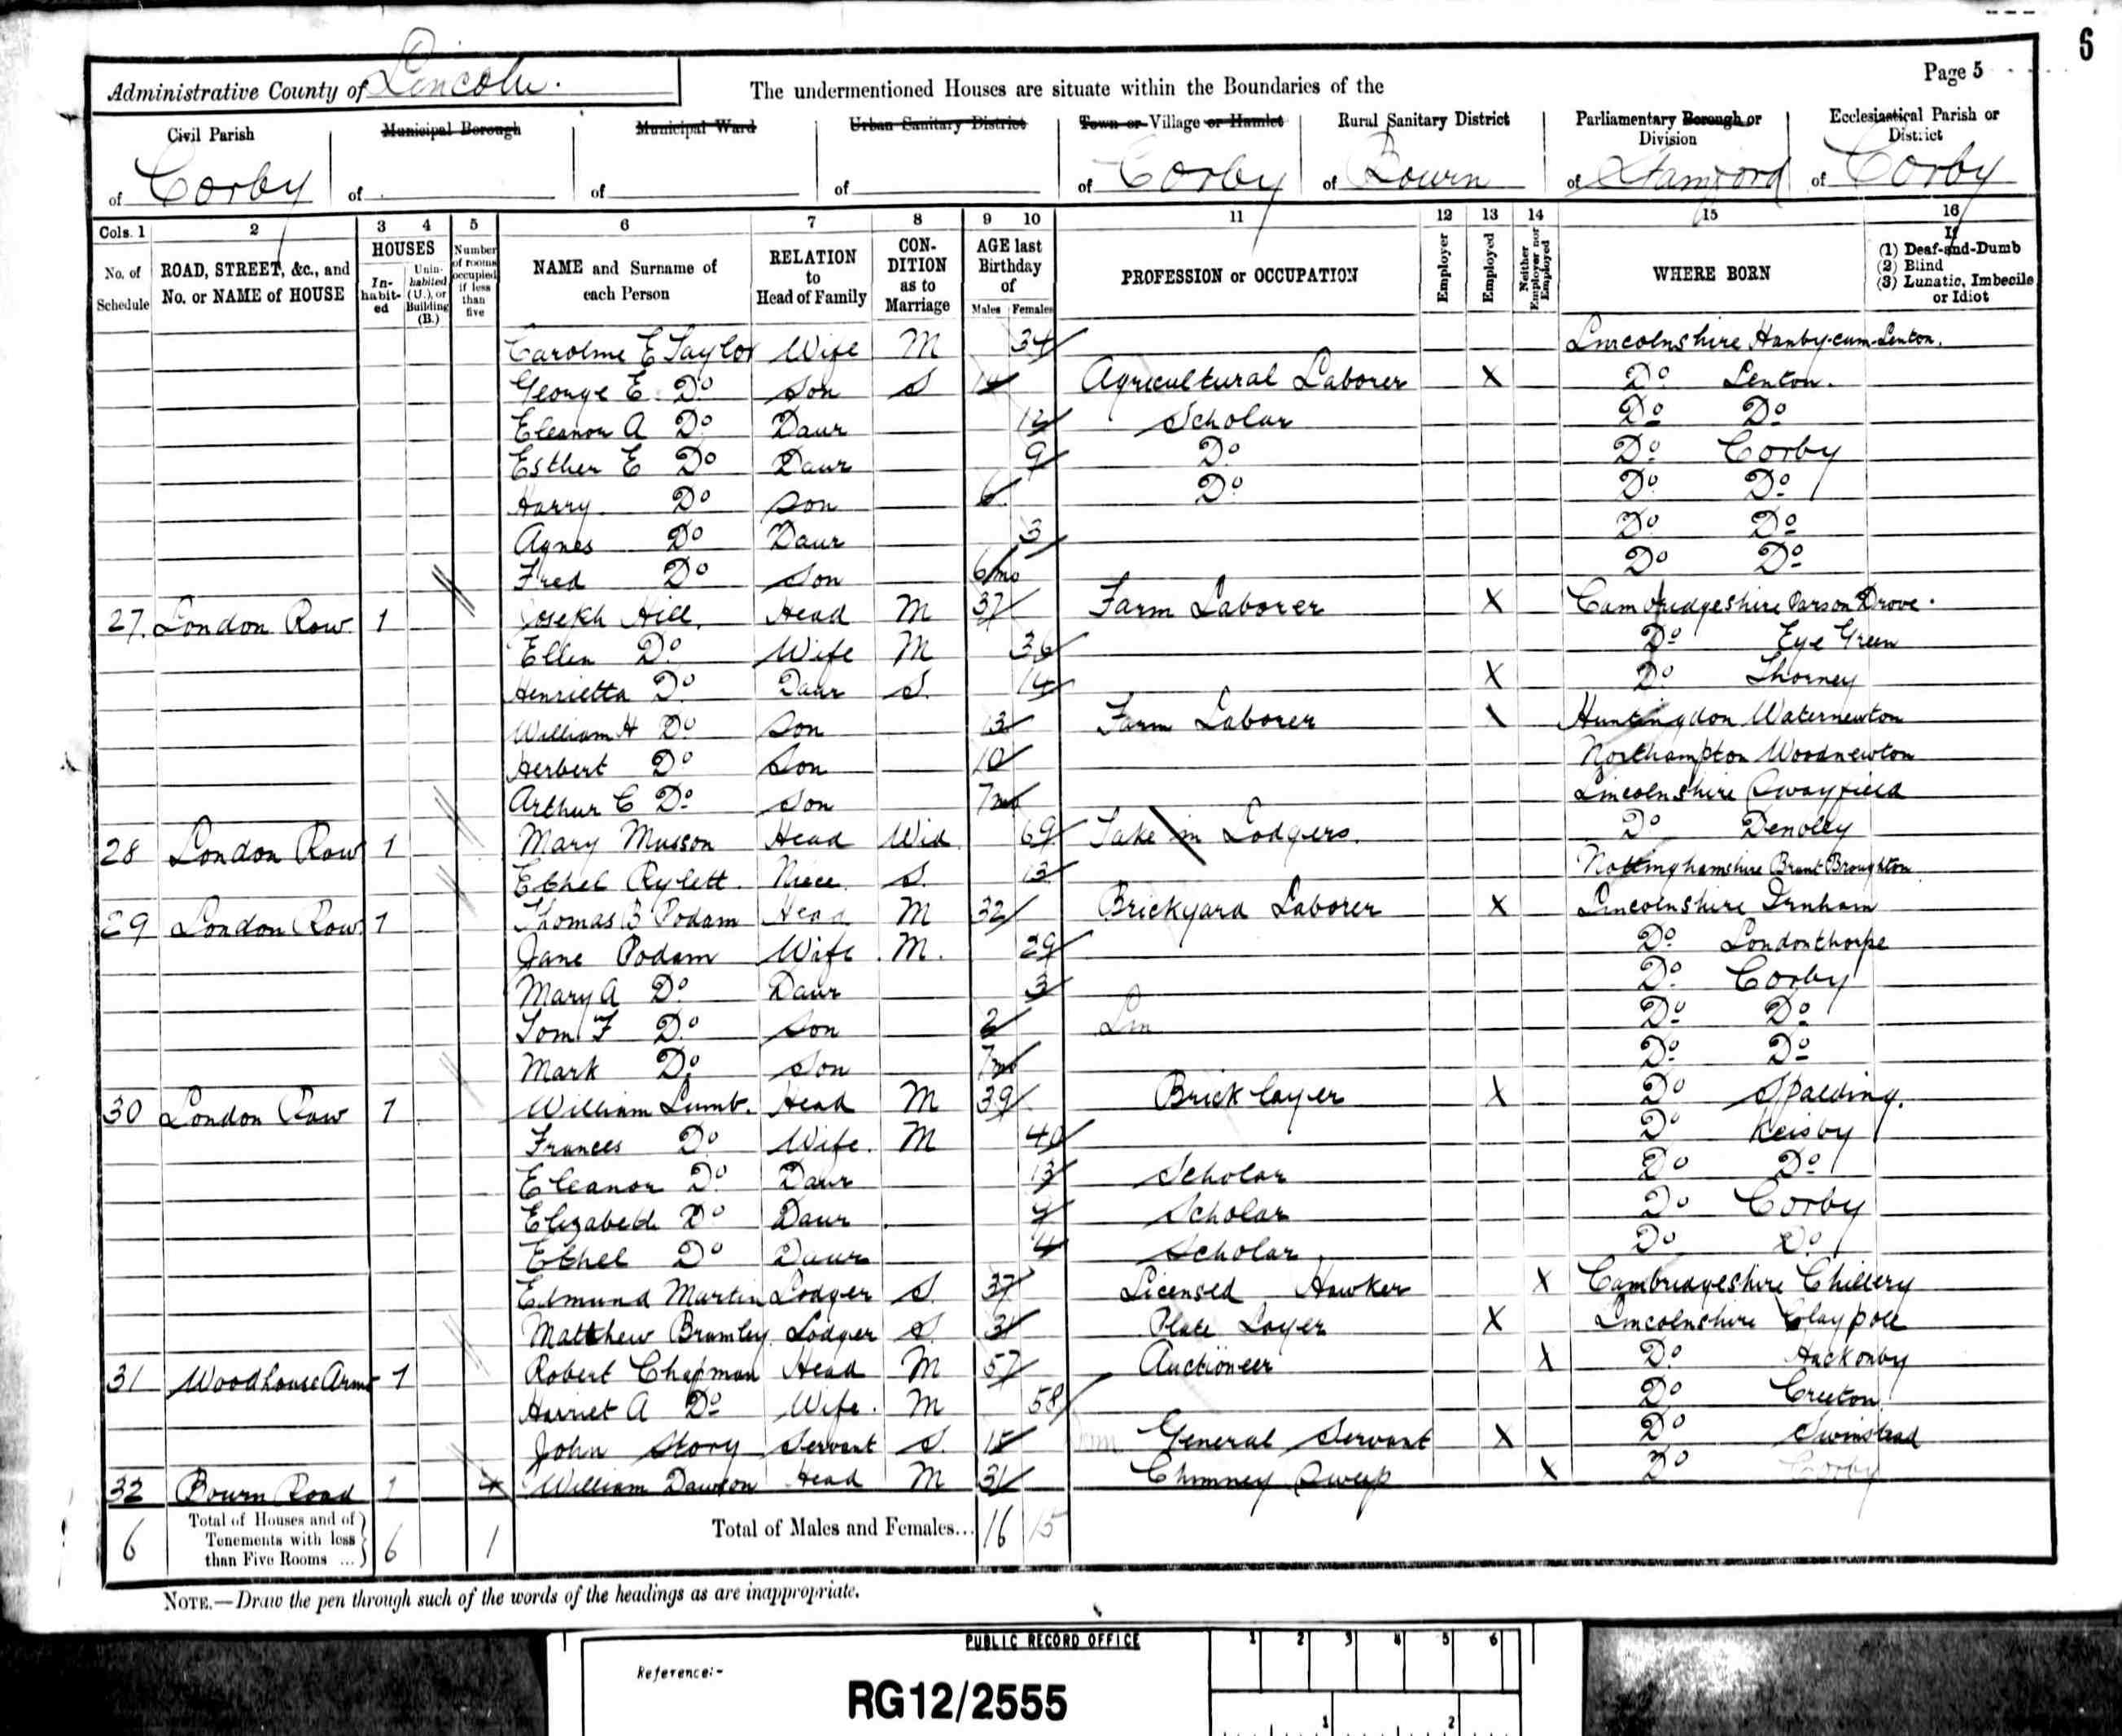 6
Page 5
Administrative County of Lincoln.
The undermentioned Houses are situate within the Boundaries of the
Civil Parish of Corby
Municipal Borough of
Municipal Ward of
Urban Sanitary District of
Town or Village or Hamlet of Corby
Rural Sanitary District of Bourn
Parliamentary Borough or Division of Stamford
Ecclesiastical Parish or District of Corby
Cols. 1 2 3 4 5 6 7 8 9 10 11 12 13 14 15 16
No. of Schedule
ROAD, STREET, &c., and No. or NAME of HOUSE
HOUSES
In-habit-ed
Unin-habited (U.), or Building (B.)
Number of rooms occupied if less than five
NAME and Surname of each Person
RELATION to Head of Family
CON-DITION as to Marriage
AGE last Birthday of
Males Females
PROFESSION or OCCUPATION
Employer
Employed
Neither Employer nor Employed
WHERE BORN
If (1) Deaf-and-Dumb (2) Blind (3) Lunatic, Imbecile or Idiot
Caroline E Taylor Wife M 34 Lincolnshire Hanby-cum-Lenton.
George E. Do Son S 14 Agricultural Laborer X Do Lenton.
Eleanor A Do Daur 12 Scholar Do Do
Esther E Do Daur 9 Do Do Corby
Harry Do Son 6 Do Do Do
Agnes Do Daur 3 Do Do
Fred Do Son 6 mo Do Do
27. London Row 1 Joseph Hill. Head M 37 Farm Laborer X Cambridgeshire Parson Drove.
Ellen Do Wife M 36 Do Eye Green
Henrietta Do Daur S. 14 X Do Thorney
William H Do Son 13 Farm Laborer \ Huntingdon Waternewton
Herbert Do Son 10 Northampton Woodnewton
Arthur C Do Son 7 mo Lincolnshire Swayfield
28 London Row 1 Mary Musson Head Wid 69 Take in Lodgers. Do
Ethel Rylett. Niece S. 13 Nottinghamshire Brant Broughton
29 London Row 1 Thomas B Podam Head M 32 Brickyard Laborer X Lincolnshire Irnham
Jane Podam Wife M. 29 Do Londonthorpe
Mary A Do Daur 3 Do Corby
Tom F Do Son 2 Lin Do Do
Mark Do Son 7 mo Do Do
30 London Row 1 William Lumb. Head M 39 Brick layer X Do Spalding.
Frances Do Wife. M 40 Do Keisby
Eleanor Do Daur 13 Scholar Do Do
Elizabeth Do Daur Scholar Do Corby
Ethel Do Daur 4 Scholar Do Do
Edmund Martin Lodger S. 37 Licensed Hawker X Cambridgeshire
Matthew Bramley. Lodger S. Plate Layer X Lincolnshire Claypole
31 Woodhouse Arms 1 Robert Chapman Head M 57 Auctioneer X Do Hackonby
Harriet A Do Wife. M 58 Do Creeton
John Story Servant S. 15 General Servant X Do Swinstead
32 Bourn Road 1 4 William Dawson Head M 31 Chimney Sweep X Do Corby
6 Total of Houses and of Tenements with less than Five Rooms ... 6 1 Total of Males and Females... 16 15
NOTE.—Draw the pen through such of the words of the headings as are inappropriate.
PUBLIC RECORD OFFICE
1 2 3 4 5 6
Reference:-
RG12/2555
1 2